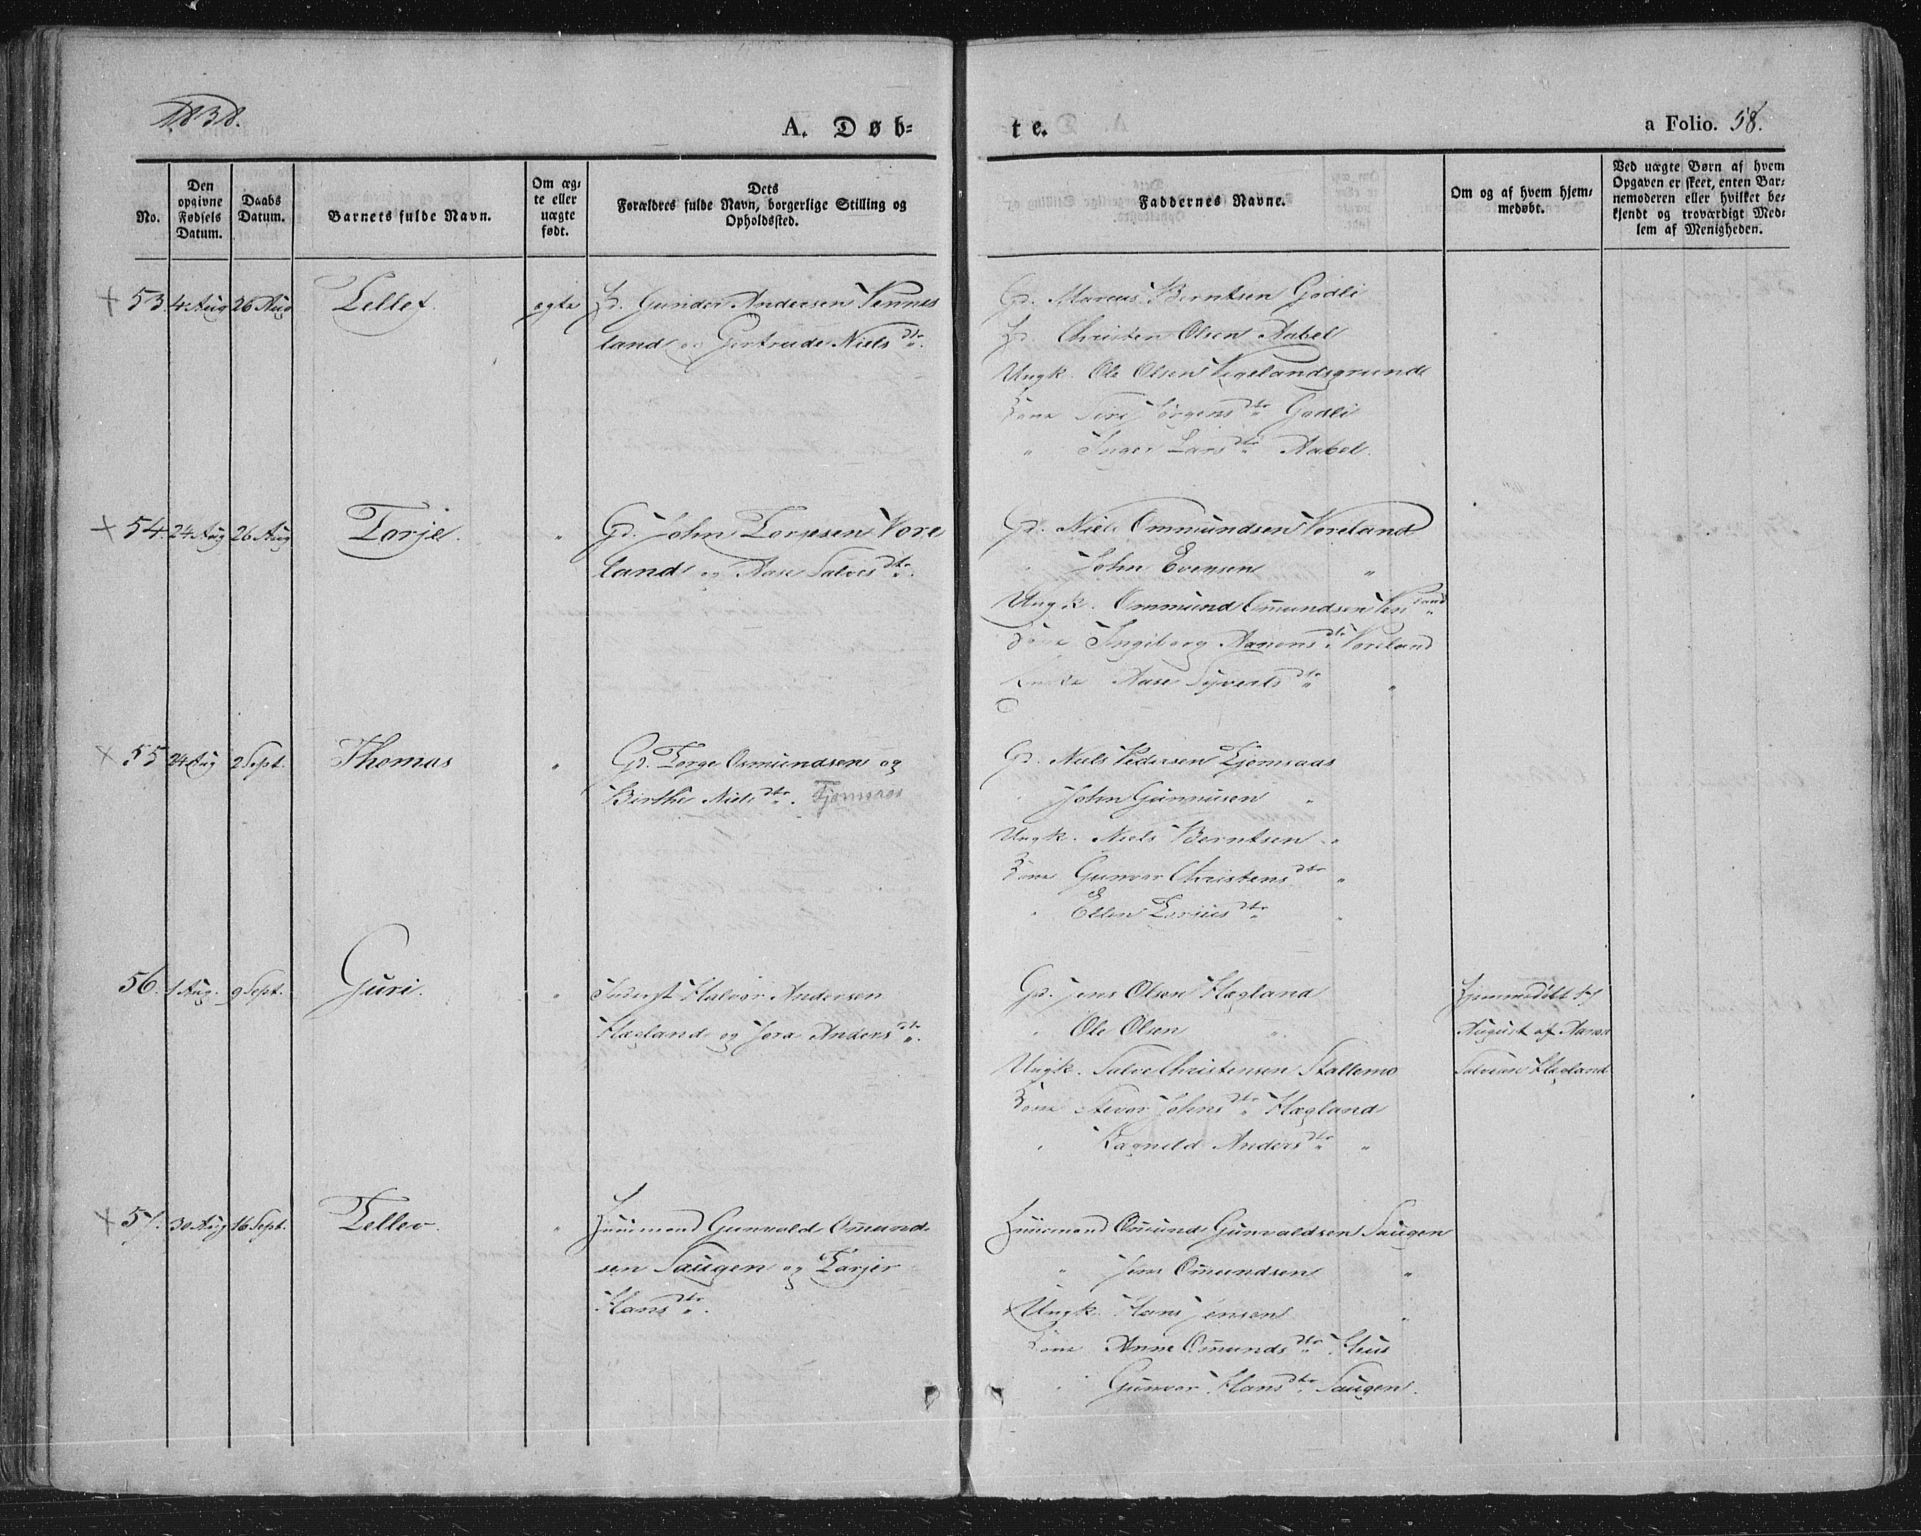 1838.
A. Døb-
te.
a Folio. 58.
No.
Den opgivne Fødsels Datum.
Daabs Datum.
Barnets fulde Navn.
Om ægte eller uægte født.
Dets Forældres fulde Navn, borgerlige Stilling og Opholdssted.
Faddernes Navne.
Om og af hvem hjemmedøbt.
Ved uægte Børn af hvem Opgaven er skeet, enten Barnemoderen eller hvilket bekjendt og troværdigt Medlem af Menigheden.
+ 53. 4 Aug 26 Aug Tellef. egte Gunder Andersen Vennes
land og Gertrude Niels dtr.
Gd. Marcus Berntsen Godli
Christen Olsen Aabel
Ungk. Ole Olsen Vigelandsgrund
Kone Siri Jörgens dtr Godli
" Inger Lars dtr Aabel.
+ 54. 24 Aug 26 Aug Torje. " Gd. John Torjesen Vore
land og Aase Salves dtr.
Gd. Niels Ommundsen Voreland
" John Evensen "
Ungk. Ommund Omundsen
Kone Ingiborg Aanons dtr Voreland
Aase Syverts dtr "
+ 55 24 Aug 2 Sept. Thomas " Gd. Torge Osmundsen og
Birthe Niels dtr. Tjomsaas
Gd. Niels Pedersen Tjomsaas
" John Gunnusen "
Ungk. Niels Berntsen "
Kone Gunvor Christens dtr "
" Ellen Torjus dtr "
56. 1 Aug. 9 Sept. Guri. " Halvor Andersen
Hægland og Jora Anders dtr.
Gd. Jens Olsen Hægland
" Ole Olsen "
Ungk. Salve Christensen Stallemo
Kone Stevor Johns dtr Hægland
" Ragnild Anders dtr "
Hjemmedöbt
August af Aanon
Salvesen Hægland
+ 57. 30 Aug 16 Sept. Tellev " Huusmand Gunvald Omund
sen Saugen og Tarjer
Hans dtr.
Huusmand Omund Gunvaldsen Saugen
" Jens Omundsen "
Ungk. Hans Jensen "
Kone Anne Omunds dtr Huus
" Gunvor Hans dtr Saugen.